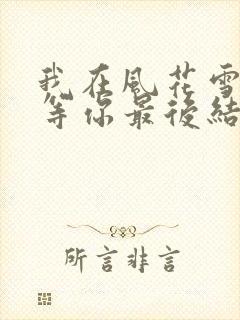 我在風花雪
等你最後結
所言非言